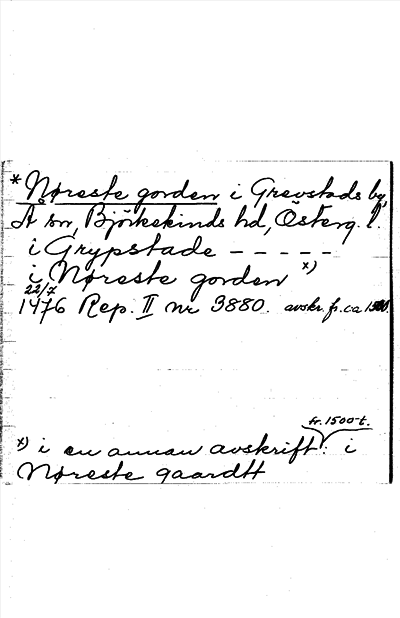 * Nøreste gorden i Grevstads by,
Å sn, Björkekinds hd, Österg. l.
i Grypstade - - - - -
i Nøreste gorden x)
22/7
1476 Rep. II nr 3880. avskr. fr. ca 1500.
fr. 1500-t.
x) i en annan avskrift: i
Nøreste gaardtt